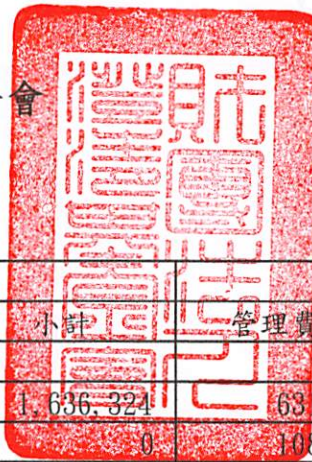 會
財團法人
小計 管理費
1,636,324 63
0 108